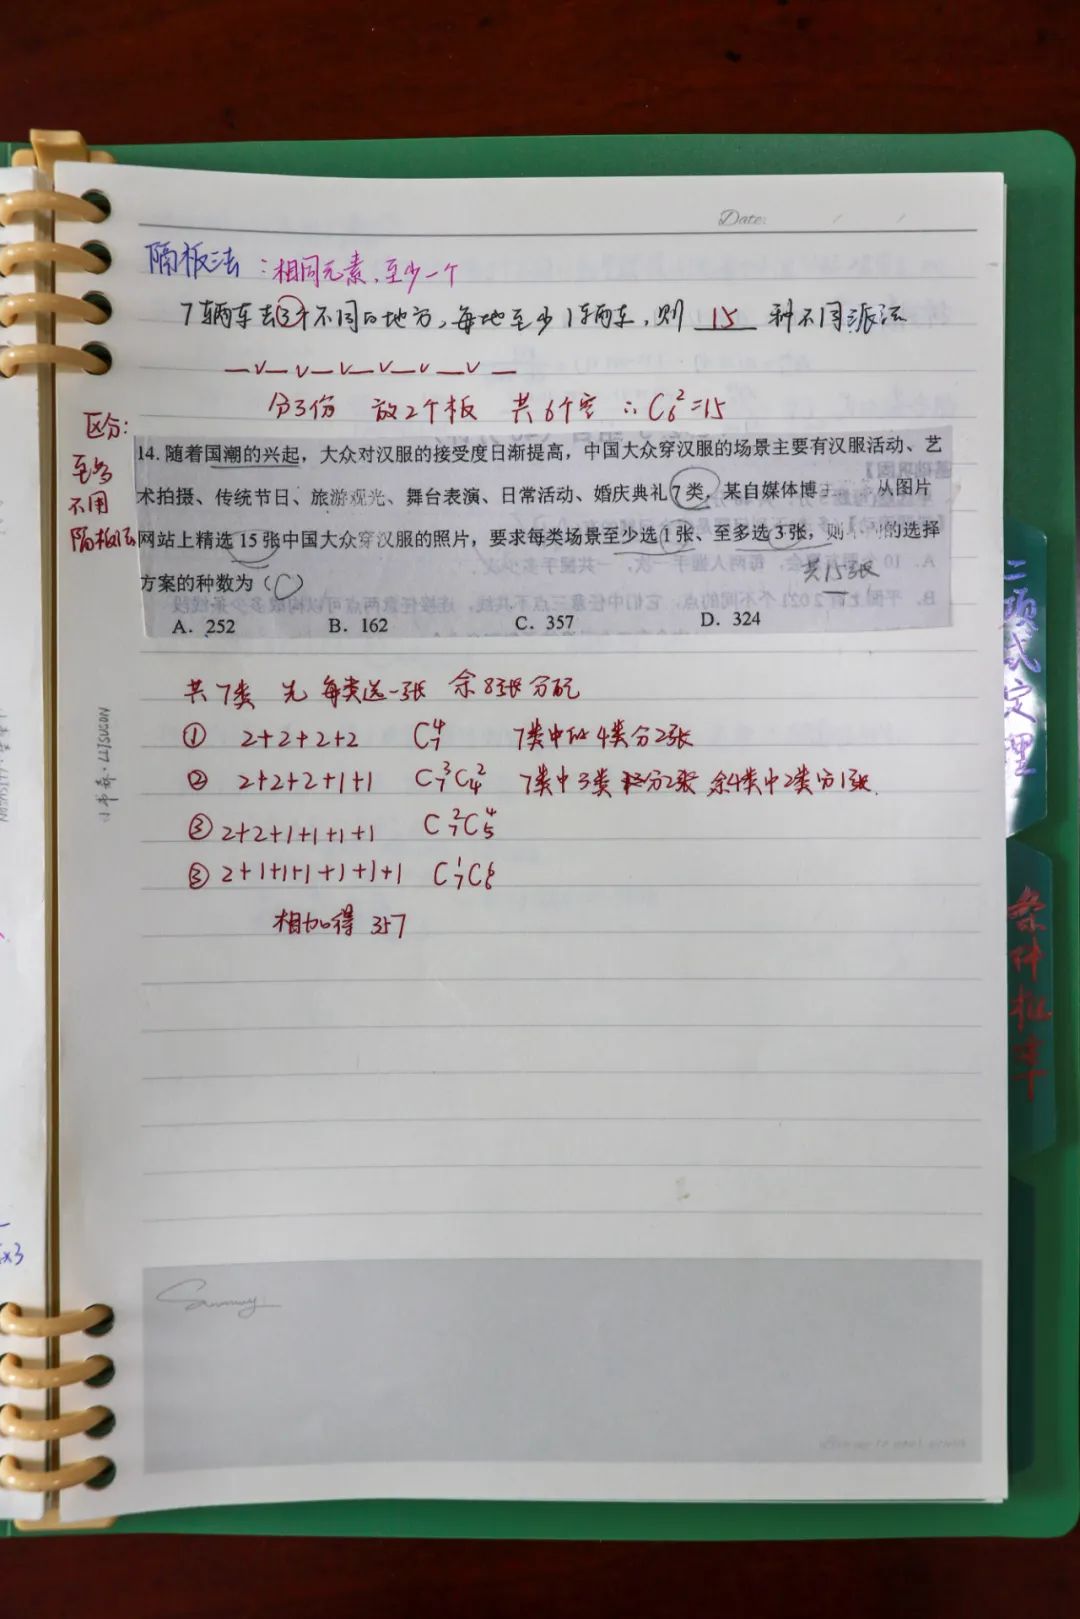 Date: / /
隔板法：相同元素、至少一个
7辆车去3个不同的地方，每地至少1辆车，则 15 种不同派法
分3份 放2个板 共6个空 ∴C₆²=15
区分：
至多
不用
隔板法
14. 随着国潮的兴起，大众对汉服的接受度日渐提高，中国大众穿汉服的场景主要有汉服活动、艺
术拍摄、传统节日、旅游观光、舞台表演、日常活动、婚庆典礼7类，某自媒体博 从图片
网站上精选15张中国大众穿汉服的照片，要求每类场景至少选1张、至多选3张，则 的选择
共15张
方案的种数为（C）
A. 252 B. 162 C. 357 D. 324
共7类 先每类选一张 余8张分配
① 2+2+2+2 C₇⁴ 7类中的4类分2张
② 2+2+2+1+1 C₇³C₄² 7类中3类分2张 余4类中2类分1张.
③ 2+2+1+1+1+1 C₇²C₅⁴
③ 2+1+1+1+1+1+1 C₇¹C₆
相加得 357
二项式定理
条件概率
小书森·LIJSUSON
×3
Sammy